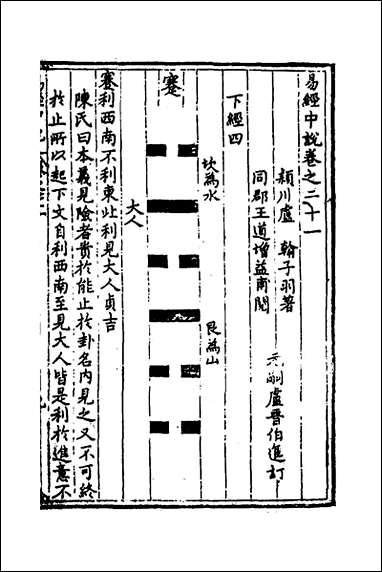 易經中說卷之二十一
潁川盧 翰子羽著
同郡王道增益甫閱
盧晉伯進訂
下經四
坎為水
艮為山
蹇
大人
蹇利西南不利東北利見大人貞吉
陳氏曰本義見險者貴於能止於卦名內見之又不可終
於止所以起下文自利西南至見大人皆是利於進意不